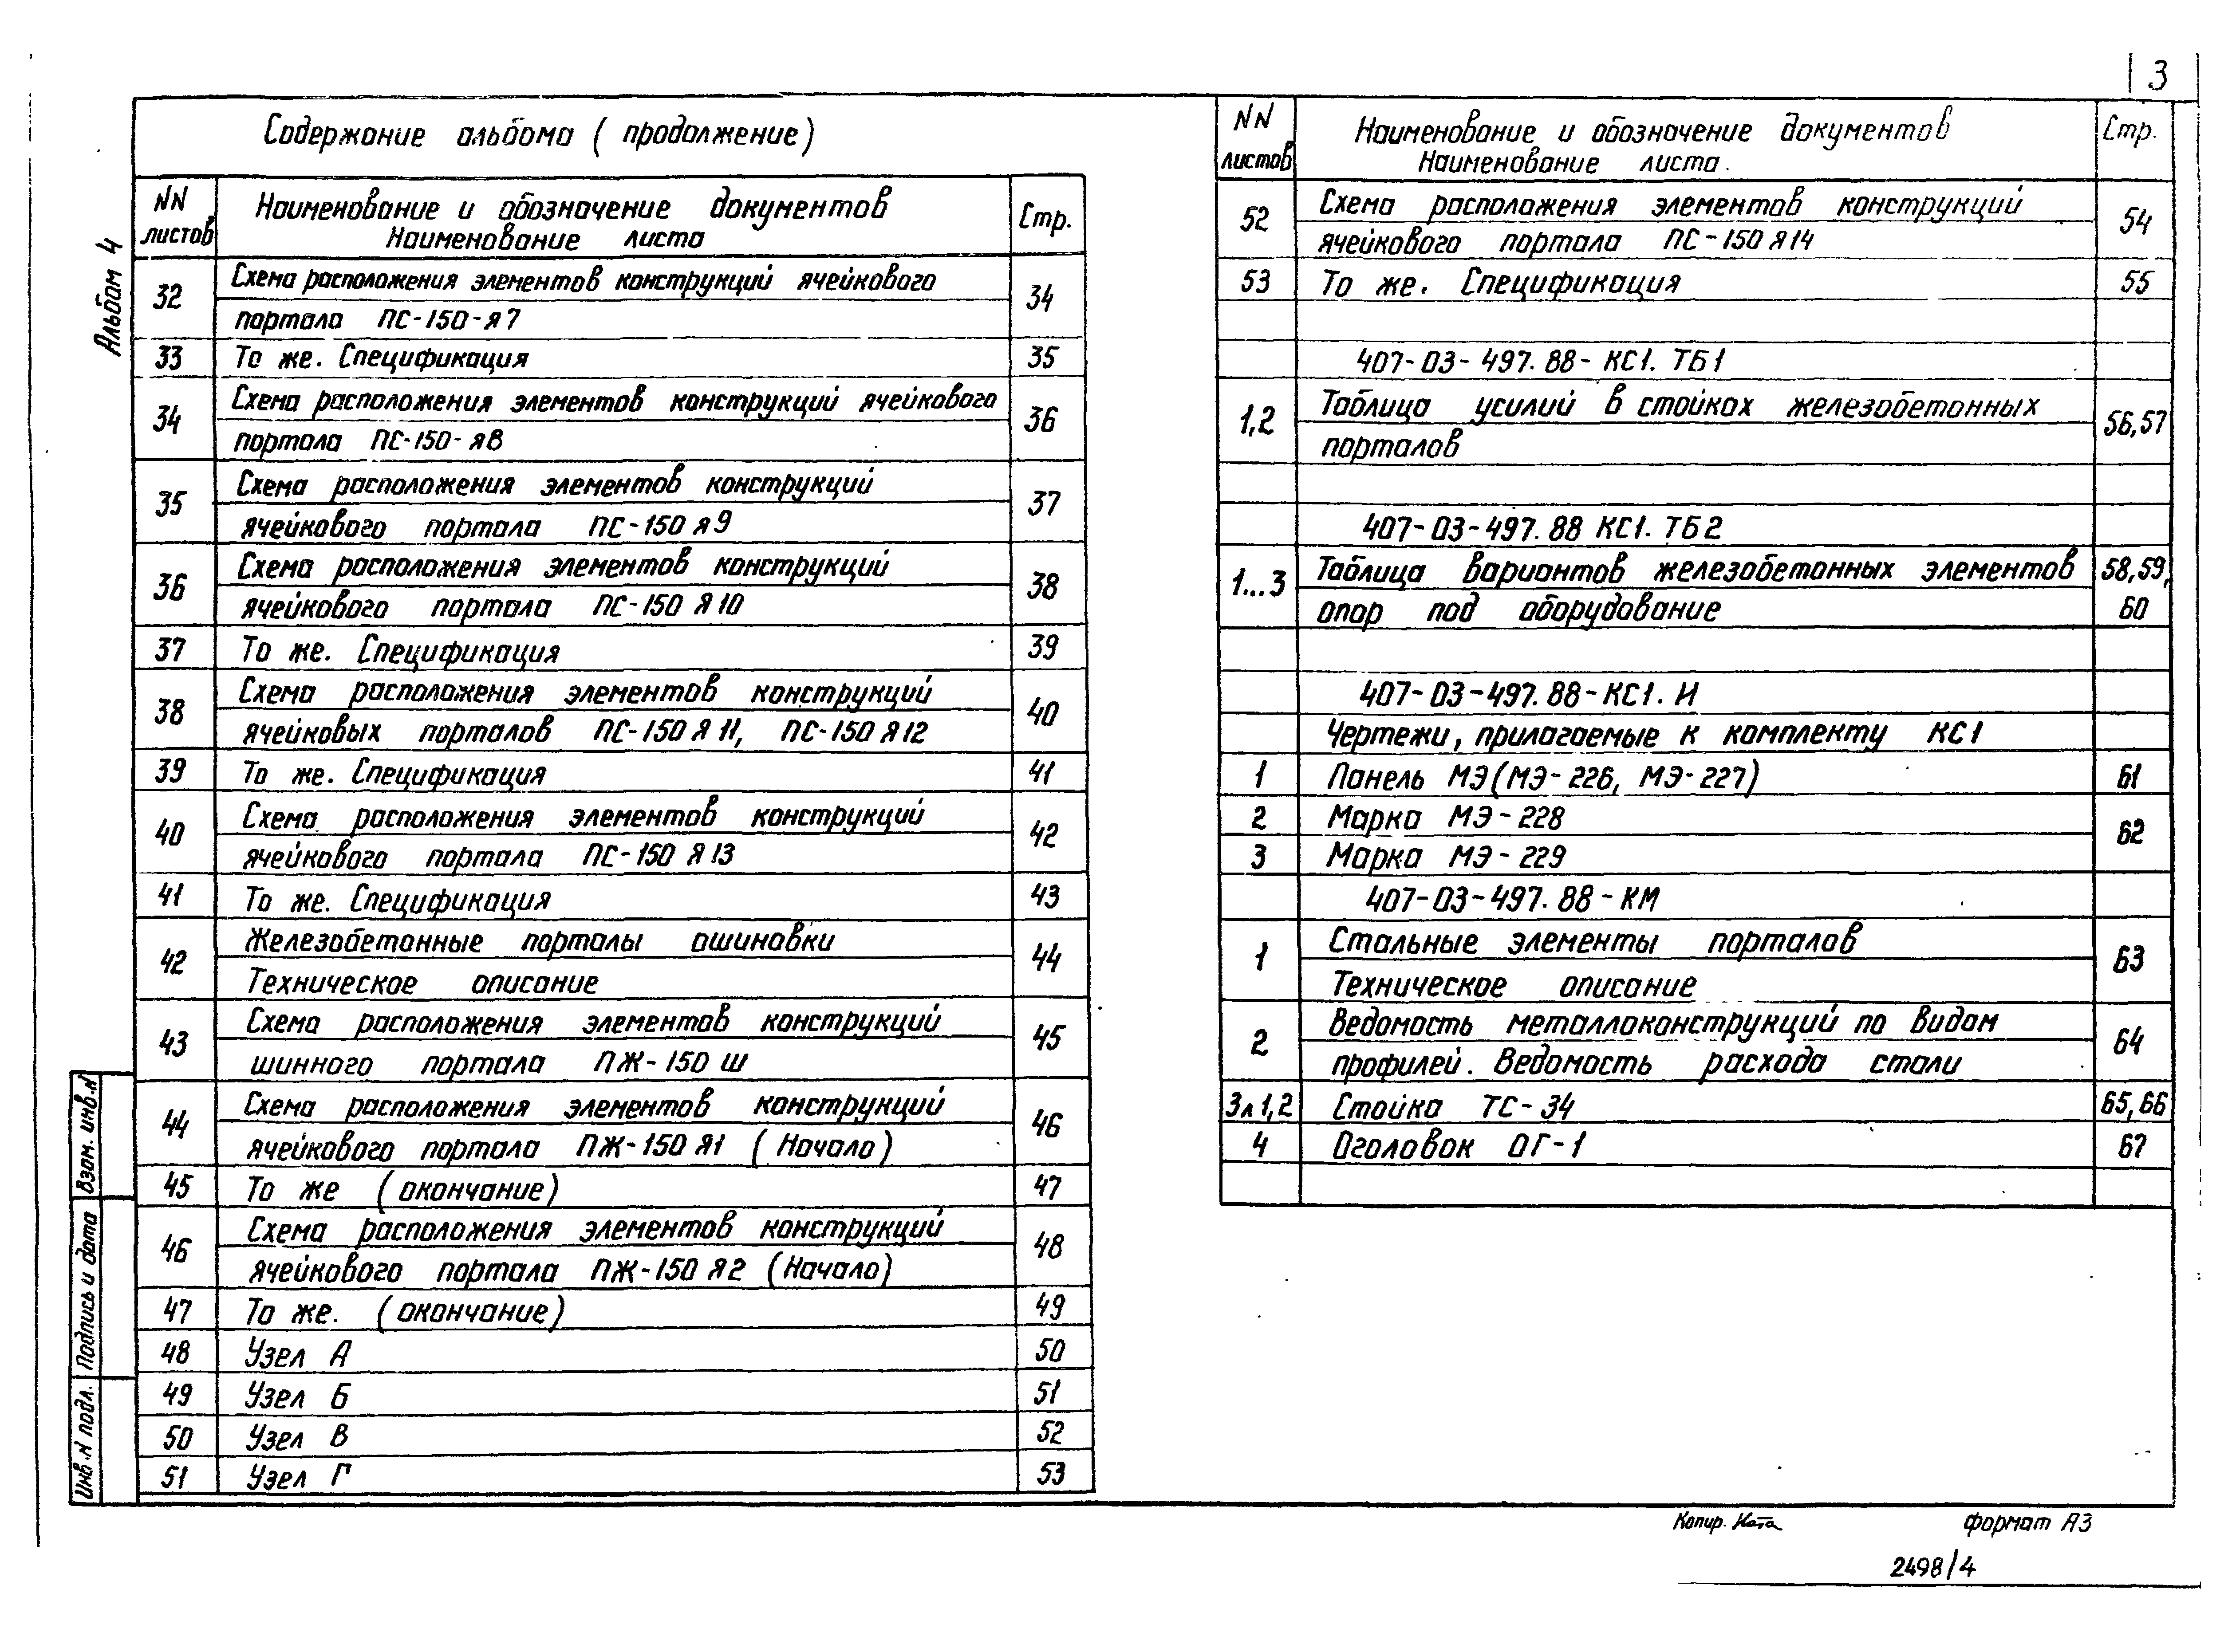 3
Содержание альбома ( продолжение )
Альбом 4
NN листов
Наименование и обозначение документов
Наименование листа
Стр.
32
Схема расположения элементов конструкций ячейкового
портала ПС-150-Я7
34
33 То же. Спецификация 35
34
Схема расположения элементов конструкций ячейкового
портала ПС-150-Я8
36
35
Схема расположения элементов конструкций
ячейкового портала ПС-150 Я9
37
36
Схема расположения элементов конструкций
ячейкового портала ПС-150 Я10
38
37 То же. Спецификация 39
38
Схема расположения элементов конструкций
ячейковых порталов ПС-150 Я11, ПС-150 Я12
40
39 То же. Спецификация 41
40
Схема расположения элементов конструкций
ячейкового портала ПС-150 Я13
42
41 То же. Спецификация 43
42
Железобетонные порталы ошиновки
Техническое описание
44
43
Схема расположения элементов конструкций
шинного портала ПЖ-150 Ш
45
44
Схема расположения элементов конструкций
ячейкового портала ПЖ-150 Я1 ( Начало )
46
45 То же ( окончание ) 47
46
Схема расположения элементов конструкций
ячейкового портала ПЖ-150 Я2 ( Начало )
48
47 То же. ( окончание ) 49
48 Узел А 50
49 Узел Б 51
50 Узел В 52
51 Узел Г 53
NN листов
Наименование и обозначение документов
Наименование листа.
Стр.
52
Схема расположения элементов конструкций
ячейкового портала ПС-150 Я14
54
53 То же. Спецификация 55
407-03-497.88-КС1.ТБ1
1,2
Таблица усилий в стойках железобетонных
порталов
56,57
407-03-497.88 КС1.ТБ2
1...3
Таблица вариантов железобетонных элементов
опор под оборудование
58,59,
60
407-03-497.88-КС1.И
Чертежи, прилагаемые к комплекту КС1
1 Панель МЭ(МЭ-226, МЭ-227) 61
2 Марка МЭ-228
62
3 Марка МЭ-229
407-03-497.88-КМ
1
Стальные элементы порталов
Техническое описание
63
2
Ведомость металлоконструкций по видам
профилей. Ведомость расхода стали
64
3л1,2 Стойка ТС-34 65,66
4 Оголовок ОГ-1 67
Взам. инв.N
Подпись и дата
Инв.N подл.
Копир. Ката
формат А3
2498/4